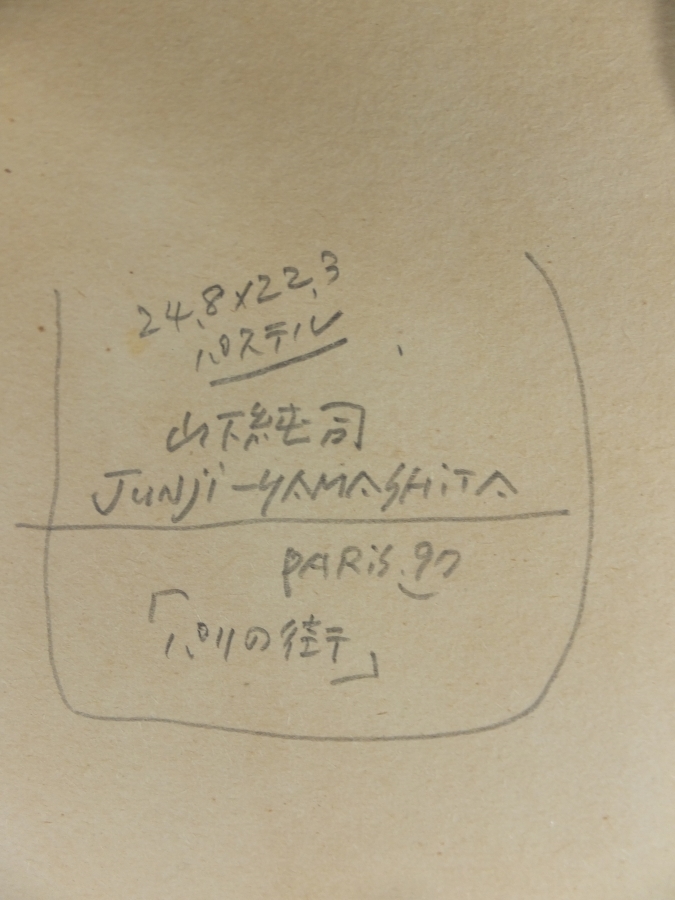 24.8×22.3
パステル
山下純司
JUNJi-YAMASHiTA
PARiS.97
「パリの街 」